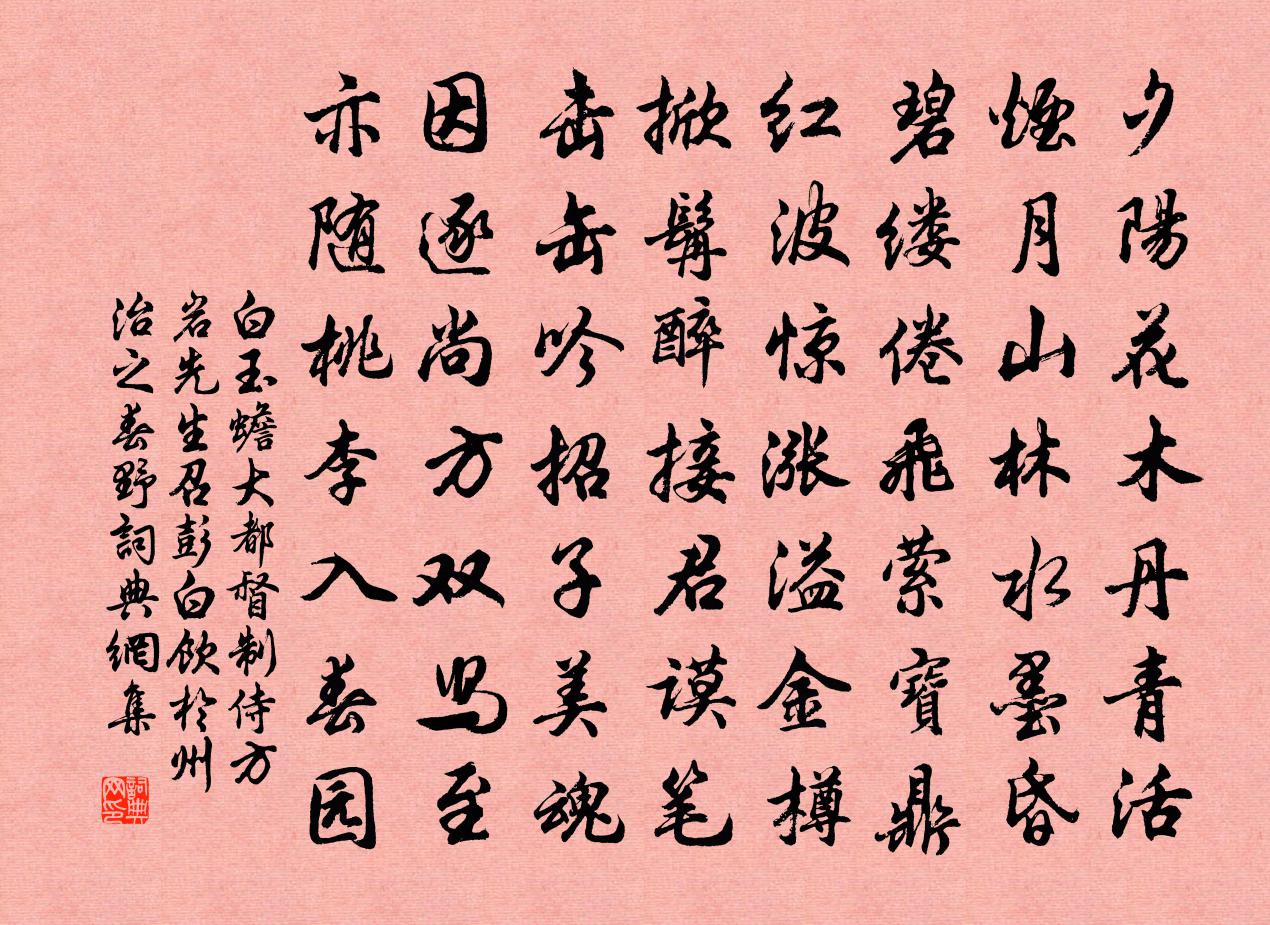 夕陽花木丹青活
煙月山林水墨昏
碧缕倦飛萦寶鼎
红波惊涨溢金樽
掀髯醉接君谟笔
击缶吟招子美魂
因逐尚方双舄至
亦随桃李入春园
白玉蟾大都督制侍方
岩先生召彭白飲於州
治之春野詞典網集
詞典网印